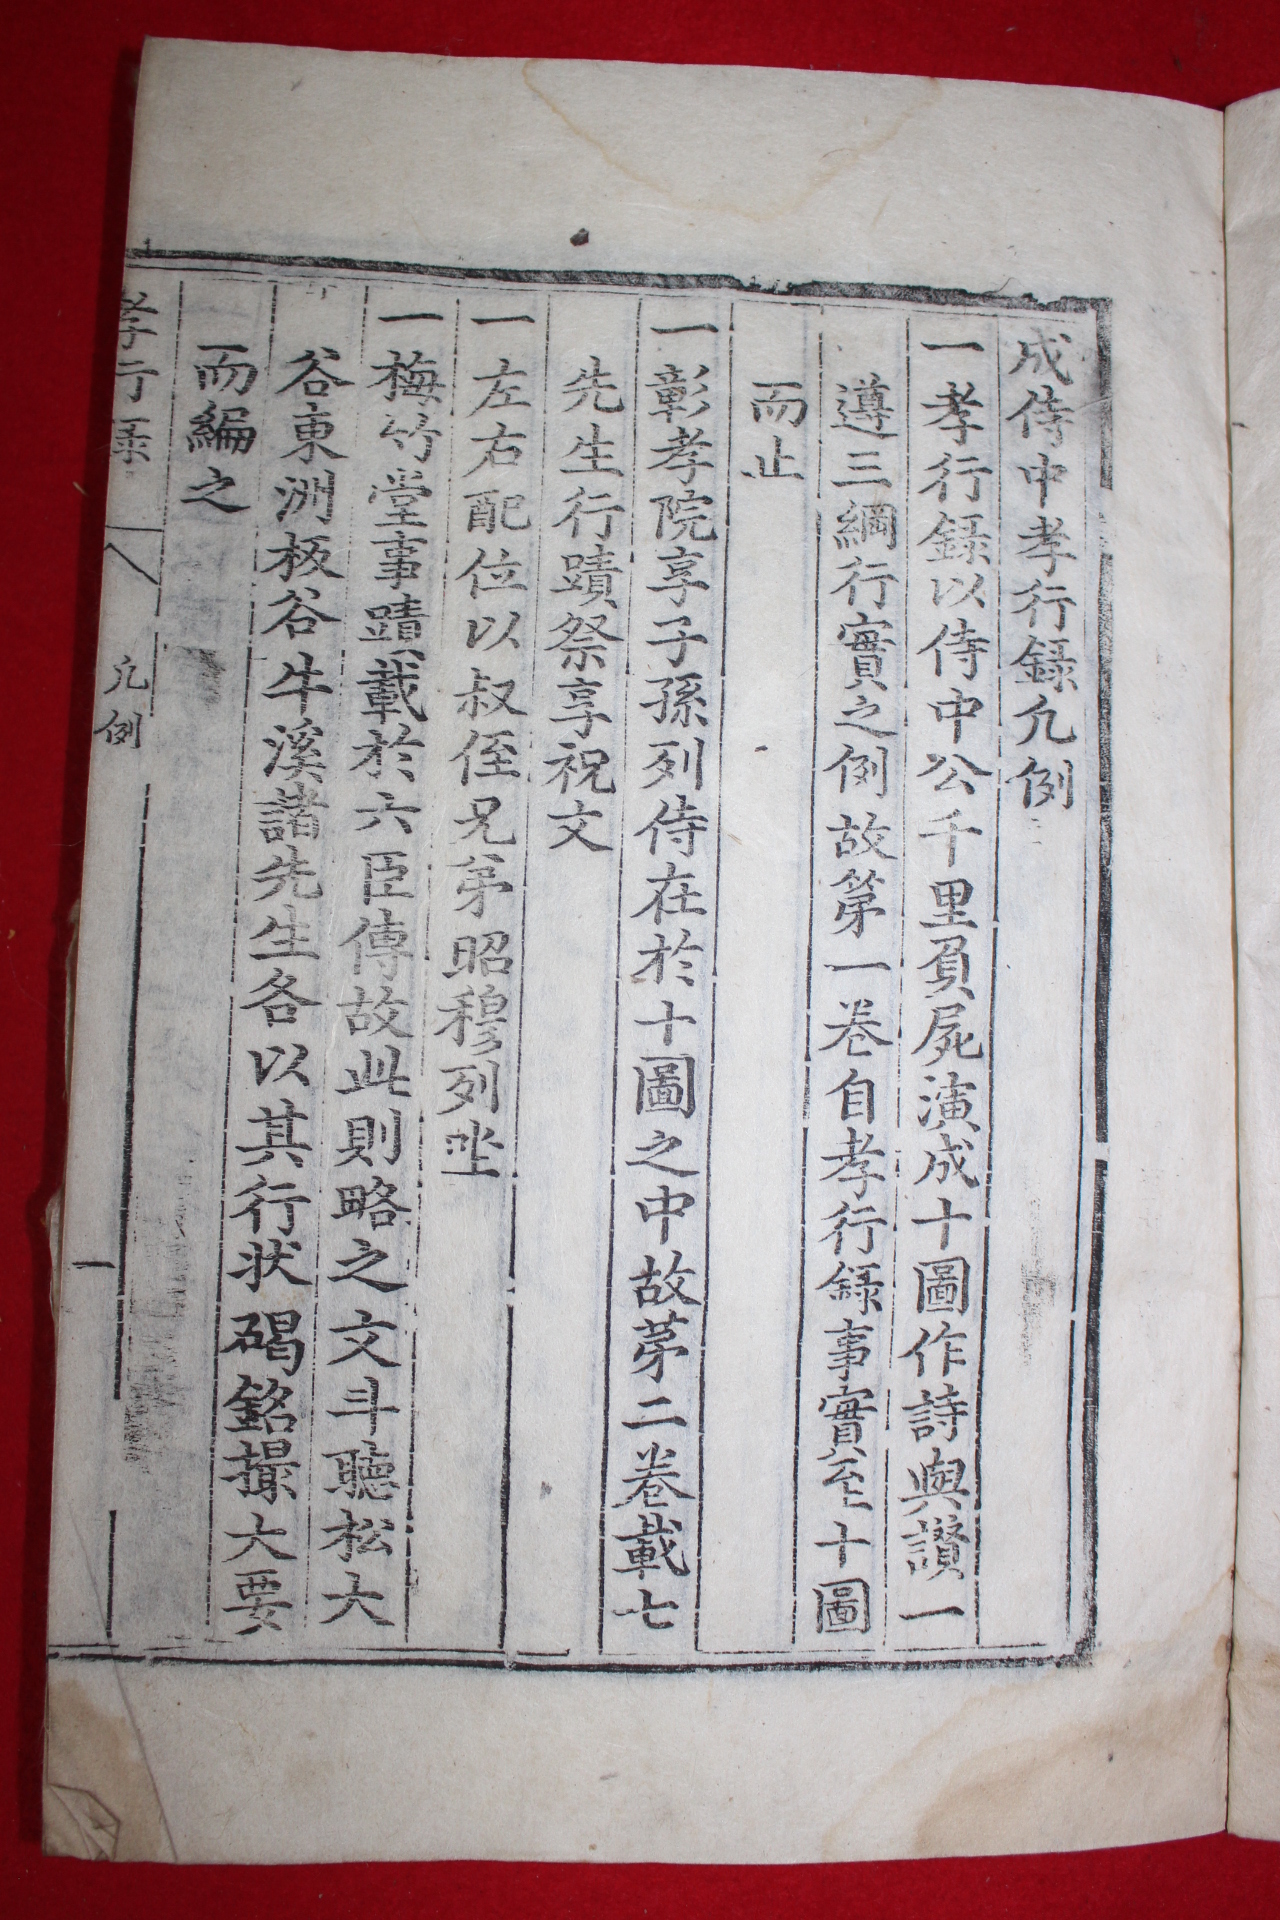 成侍中孝行錄凡例
一孝行錄以侍中公千里負屍演成十圖作詩與讚一
遵三綱行實之例故第一卷自孝行錄事實至十圖
而止
一彰孝院享子孫列侍在於十圖之中故苐二卷載七
先生行蹟祭享祝文
一左右配位以叔侄兄苐昭穆列坐
一梅竹堂事蹟載於六臣傳故此則略之文斗聽松大
谷東洲板谷牛溪諸先生各以其行状碣銘撮大要
而編之
孝行錄
凡例
一